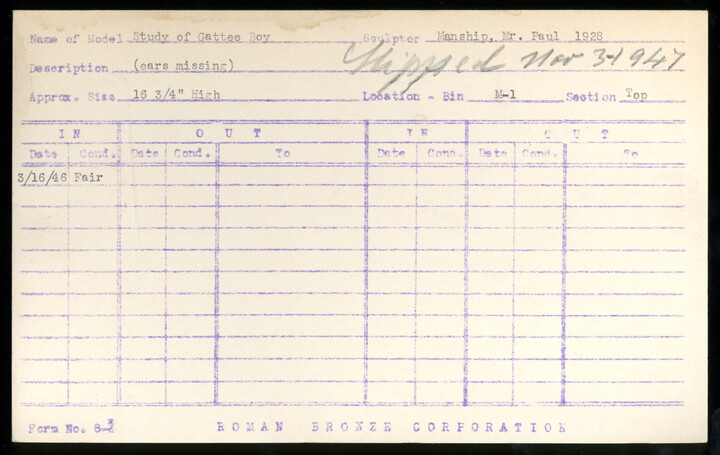 Name of Model Study of Gattee Boy Sculptor Manship, Mr. Paul 1928
Description (ears missing) Shipped Nov 3-1947
Approx. Size 16 3/4" High Location - Bin M-1 Section Top
IN OUT IN OUT
Date Cond. Date Cond. To Date Cond. Date Cond. To
3/16/46 Fair
Form No. 8-3/6
ROMAN BRONZE CORPORATION